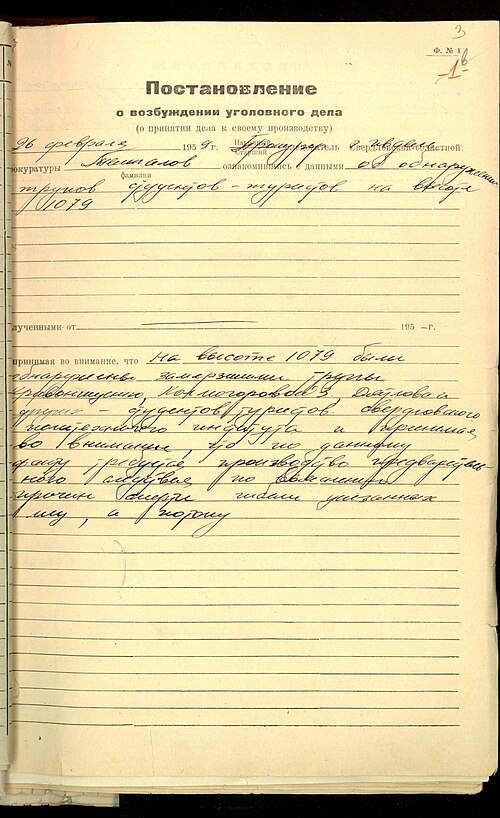 3
Ф. № 1
-1-
Постановление
о возбуждении уголовного дела
(о принятии дела к своему производству)
26 февраля 1959 г. Прокурор
окуратуры Темпалов ознакомившись с данными об обнаружении
фамилия
трупов студентов-туристов на высоте
1079
лученными от 195 — г.
принимая во внимание, что На высоте 1079 были
обнаружены замерзшими трупы
Кривонищенко, Колмогоровой З, Дятлова и
других - студентов туристов свердловского
политехнического института и принимая
во внимание, что по данному
факту требуется производство предваритель
ного следствия по
причин смерти указанных
лиц, а потому